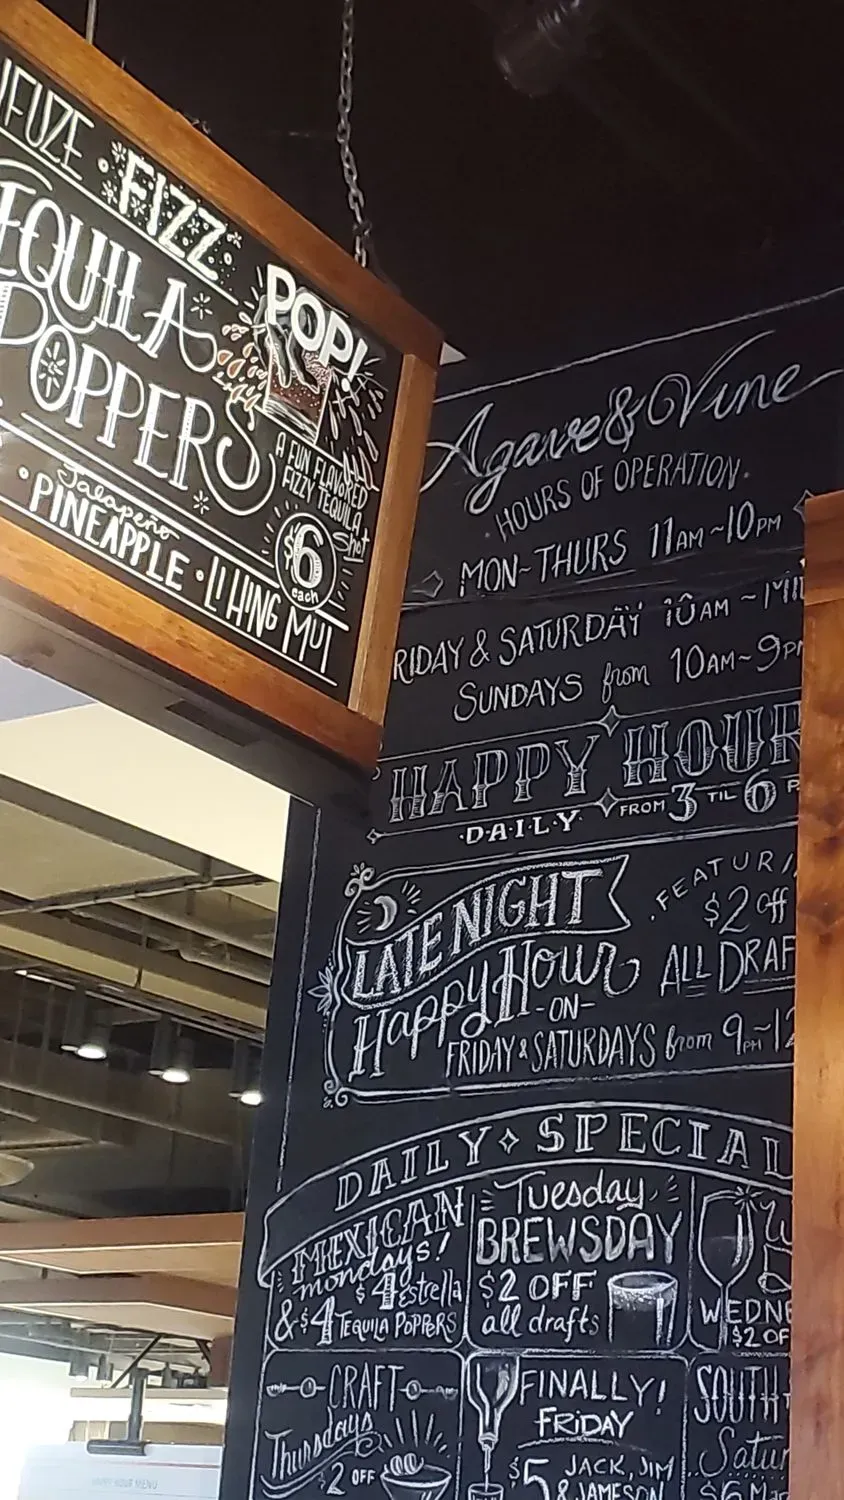 FIZZ
POPPERS
POP!
A FUN FLAVORED
FIZZY TEQUILA
Shot
$6
each
Jalapeño
• PINEAPPLE • LI HING MUI
Agave & Vine
• HOURS OF OPERATION •
MON~THURS 11AM~10PM
& SATURDAY 10AM ~
SUNDAYS from 10AM~9PM
HAPPY HOUR
• D•A•I•L•Y • FROM 3 TIL 6
LATE NIGHT
Happy Hour
-ON-
FRIDAY & SATURDAYS from 9PM~
$2 off
ALL
DAILY SPECIAL
MEXICAN
mondays!
$4 Estrella
& $4 TEQUILA POPPERS
Tuesday
BREWSDAY
$2 OFF
all drafts
$2
CRAFT
Thursdays
$2 OFF
FINALLY!
FRIDAY
$5 JACK, JIM
& JAMESON
HAPPY HOUR MENU